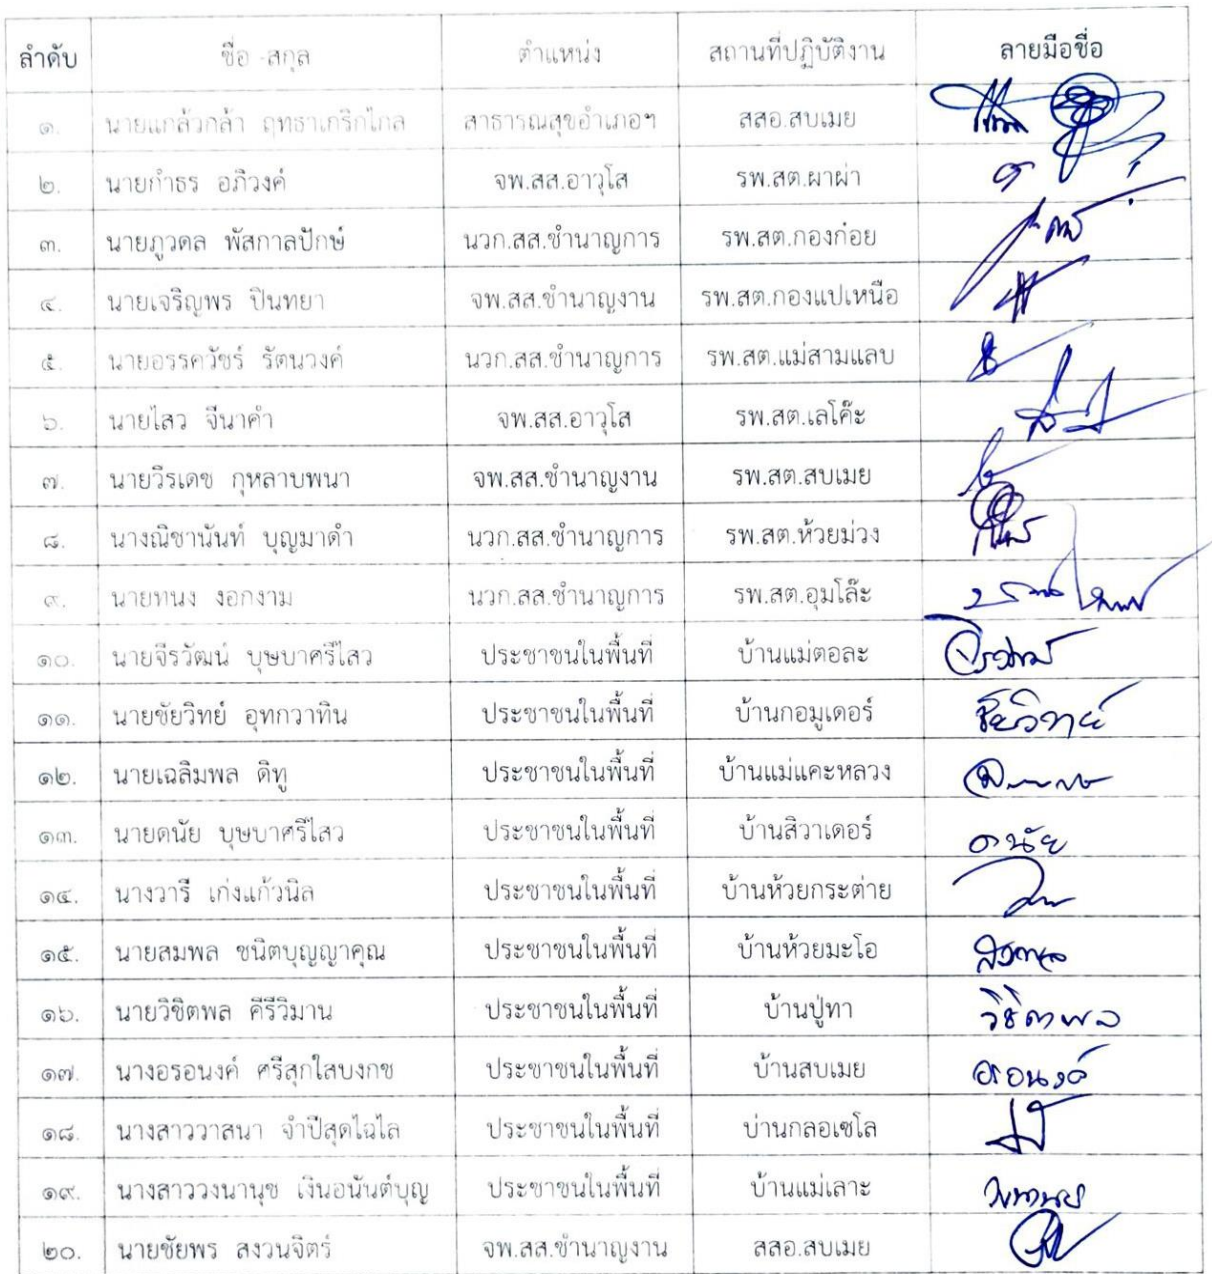 ลำดับ ชื่อ -สกุล ตำแหน่ง สถานที่ปฏิบัติงาน ลายมือชื่อ
๑. นายแกล้วกล้า ฤทธาเกริกไกล สาธารณสุขอำเภอฯ สสอ.สบเมย
๒. นายกำธร อภิวงค์ จพ.สส.อาวุโส รพ.สต.ผาผ่า
๓. นายภูวดล พัสกาลปักษ์ นวก.สส.ชำนาญการ รพ.สต.กองก่อย
๔. นายเจริญพร ปินทยา จพ.สส.ชำนาญงาน รพ.สต.กองแปเหนือ
๕. นายอรรควัชร์ รัตนวงค์ นวก.สส.ชำนาญการ รพ.สต.แม่สามแลบ
๖. นายไสว จีนาคำ จพ.สส.อาวุโส รพ.สต.เลโค๊ะ
๗. นายวีรเดช กุหลาบพนา จพ.สส.ชำนาญงาน รพ.สต.สบเมย
๘. นางณิชานันท์ บุญมาดำ นวก.สส.ชำนาญการ รพ.สต.ห้วยม่วง
๙. นายทนง งอกงาม นวก.สส.ชำนาญการ รพ.สต.อุมโล๊ะ
๑๐. นายจีรวัฒน์ บุษบาศรีไสว ประชาชนในพื้นที่ บ้านแม่ตอละ จีรวัฒน์
๑๑. นายชัยวิทย์ อุทกวาทิน ประชาชนในพื้นที่ บ้านกอมูเดอร์ ชัยวิทย์
๑๒. นายเฉลิมพล ดิทู ประชาชนในพื้นที่ บ้านแม่แคะหลวง
๑๓. นายดนัย บุษบาศรีไสว ประชาชนในพื้นที่ บ้านสิวาเดอร์ ดนัย
๑๔. นางวารี เก่งแก้วนิล ประชาชนในพื้นที่ บ้านห้วยกระต่าย
๑๕. นายสมพล ชนิตบุญญาคุณ ประชาชนในพื้นที่ บ้านห้วยมะโอ
๑๖. นายวิชิตพล คีรีวิมาน ประชาชนในพื้นที่ บ้านปู่ทา วิชิตพล
๑๗. นางอรอนงค์ ศรีสุกใสบงกช ประชาชนในพื้นที่ บ้านสบเมย อรอนงค์
๑๘. นางสาววาสนา จำปีสุดไฉไล ประชาชนในพื้นที่ บ่านกลอเซโล
๑๙. นางสาววงนานุช เงินอนันต์บุญ ประชาชนในพื้นที่ บ้านแม่เลาะ
๒๐. นายชัยพร สงวนจิตร์ จพ.สส.ชำนาญงาน สสอ.สบเมย